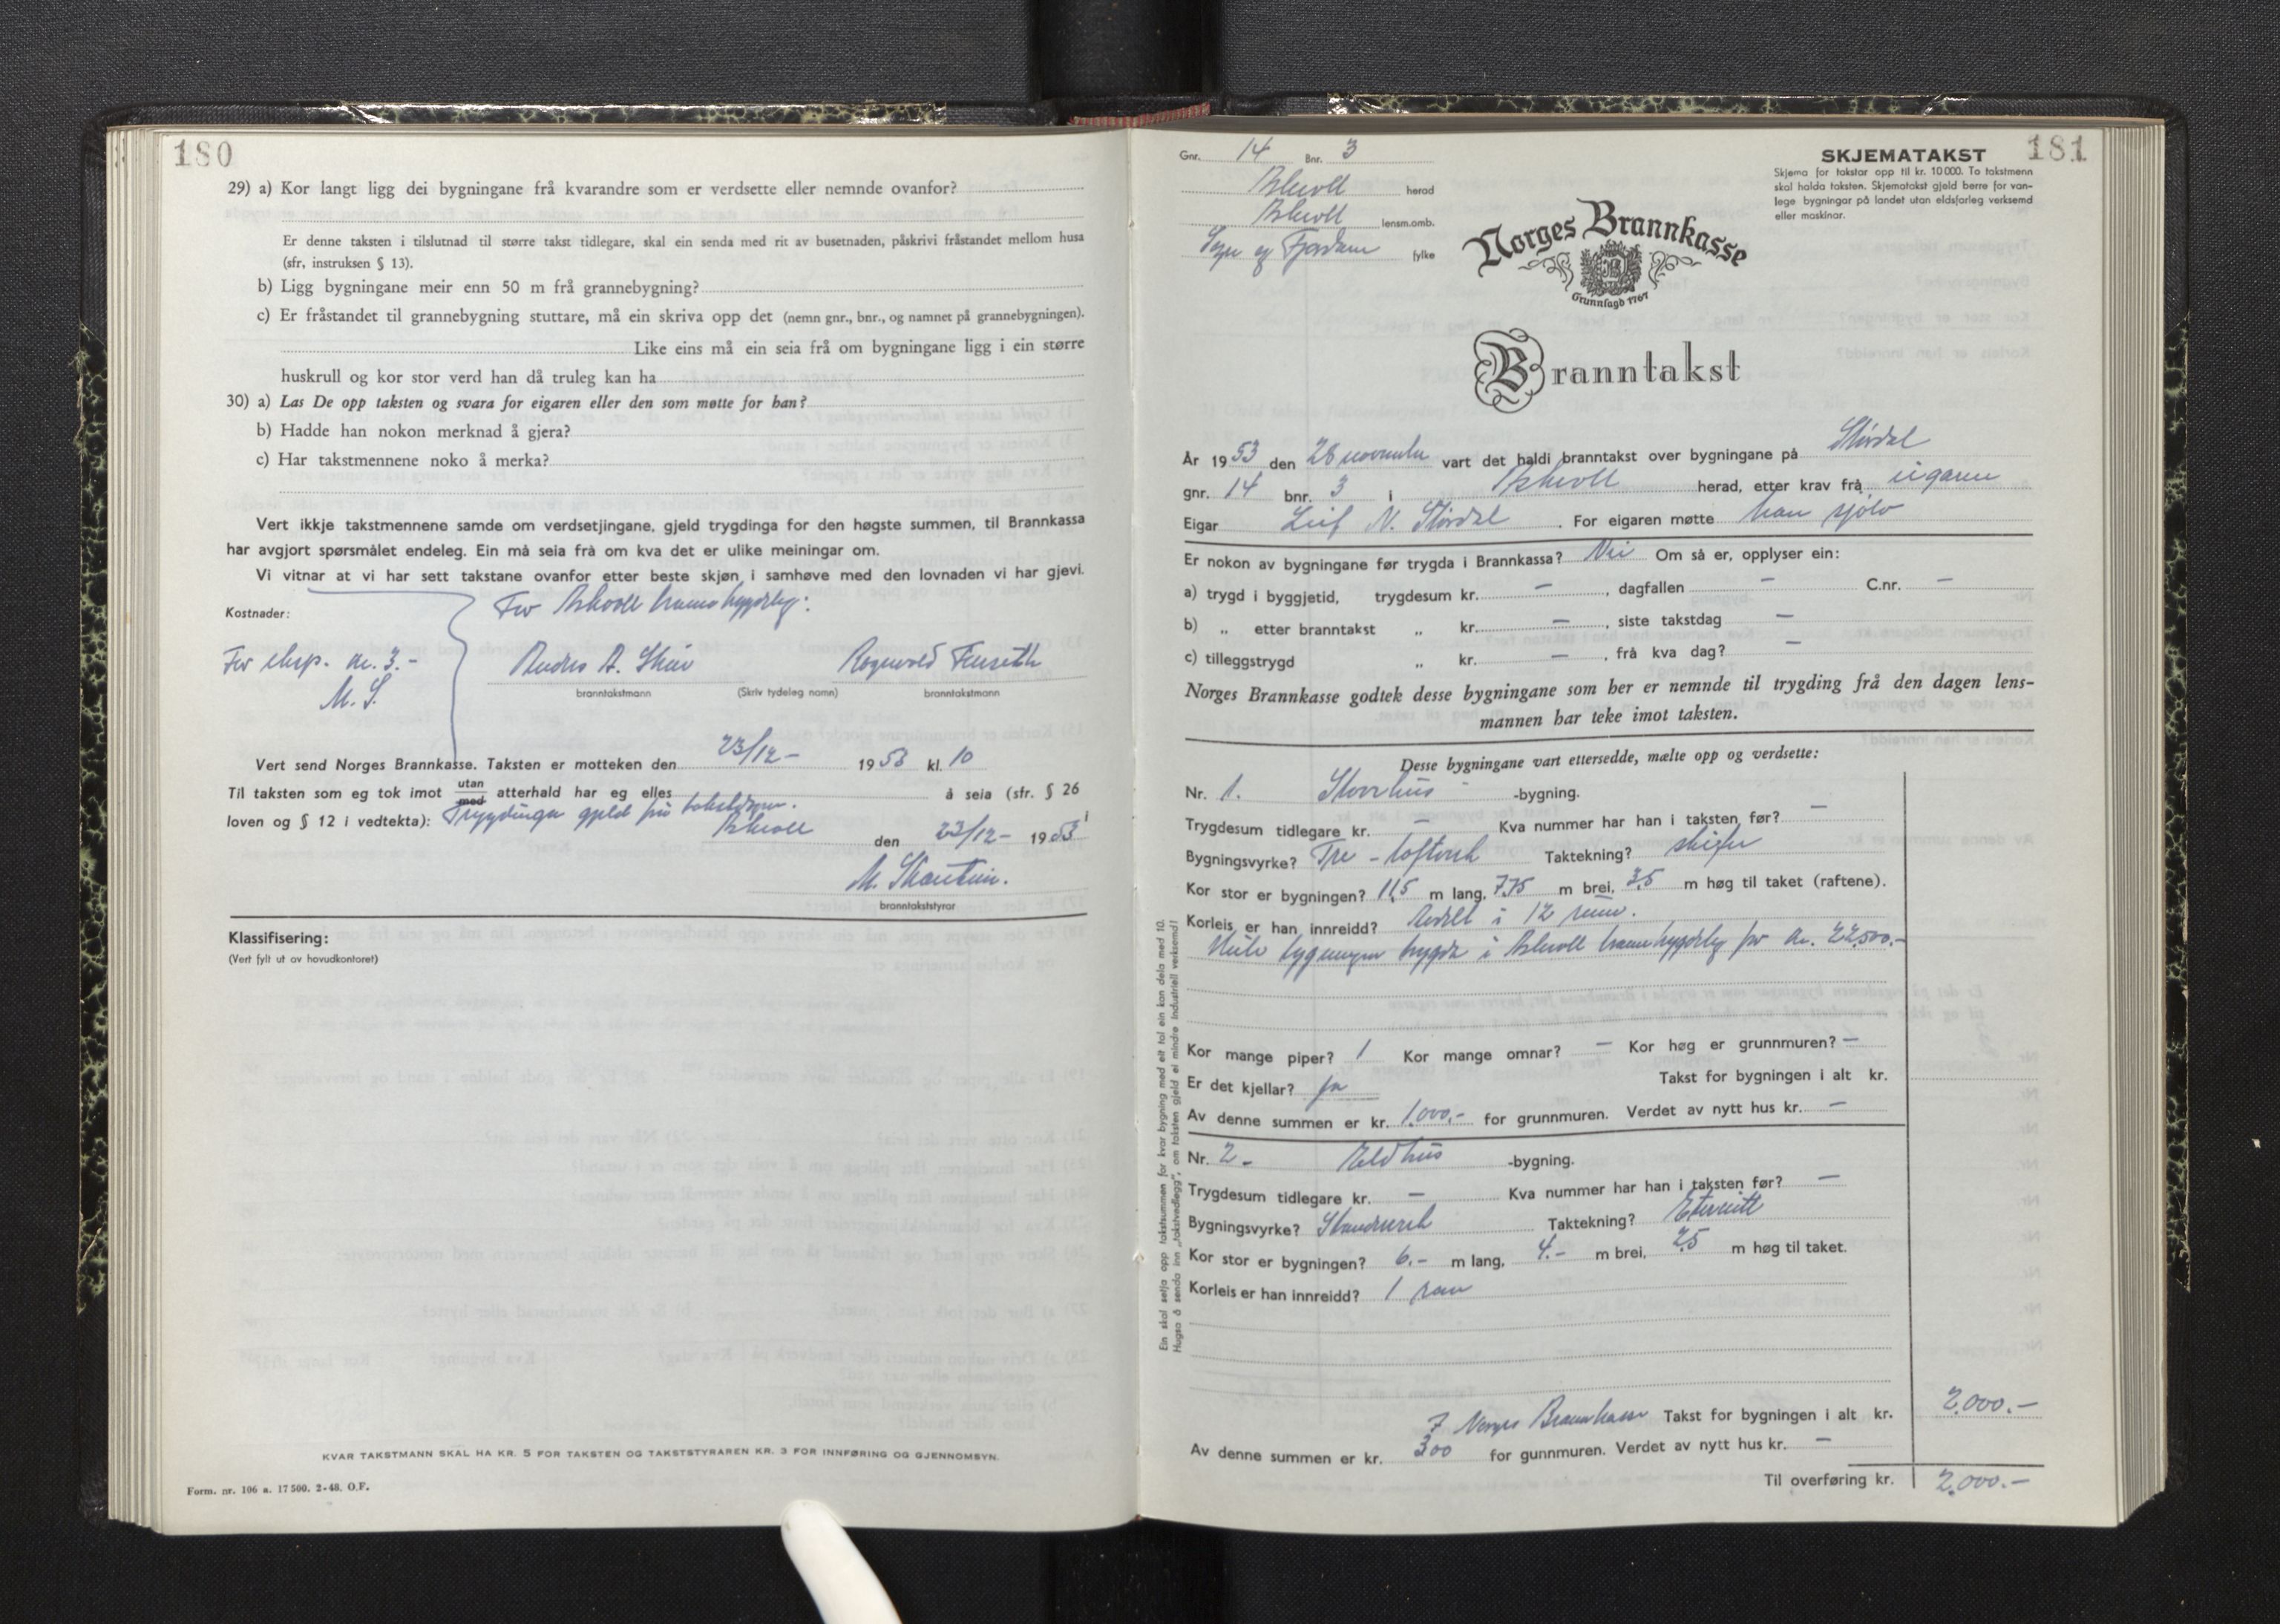 180
29) a) Kor langt ligg dei bygningane frå kvarandre som er verdsette eller nemnde ovanfor?
Er denne taksten i tilslutnad til større takst tidlegare, skal ein senda med rit av busetnaden, påskrivi fråstandet mellom husa
(sfr. instruksen § 13).
b) Ligg bygningane meir enn 50 m frå grannebygning?
c) Er fråstandet til grannebygning stuttare, må ein skriva opp det (nemn gnr., bnr., og namnet på grannebygningen).
Like eins må ein seia frå om bygningane ligg i ein større
huskrull og kor stor verd han då truleg kan ha
30) a) Las De opp taksten og svara for eigaren eller den som møtte for han?
b) Hadde han nokon merknad å gjera?
c) Har takstmennene noko å merka?
Vert ikkje takstmennene samde om verdsetjingane, gjeld trygdinga for den høgste summen, til Brannkassa
har avgjort spørsmålet endeleg. Ein må seia frå om kva det er ulike meiningar om.
Vi vitnar at vi har sett takstane ovanfor etter beste skjøn i samhøve med den lovnaden vi har gjevi.
Kostnader:
For Askvoll
For eksp. kr. 3.-
M. S.
Anders A.
branntakstmann (Skriv tydeleg namn) branntakstmann
Vert send Norges Brannkasse. Taksten er motteken den 23/12- 1953 kl. 10
Til taksten som eg tok imot utan med atterhald har eg elles å seia (sfr. § 26
loven og § 12 i vedtekta): Trygdinga gjeld frå
Askvoll den 23/12- 1953
M.
branntakststyrar
Klassifisering:
(Vert fylt ut av hovudkontoret)
KVAR TAKSTMANN SKAL HA KR. 5 FOR TAKSTEN OG TAKSTSTYRAREN KR. 3 FOR INNFØRING OG GJENNOMSYN.
Form. nr. 106 a. 17 500. 2-48. O.F.
181
Gnr. 14 Bnr. 3
Askvoll herad
Askvoll lensm.omb.
Sogn og Fjordane fylke
SKJEMATAKST
Skjema for takstar opp til kr. 10 000. To takstmenn
skal halda taksten. Skjematakst gjeld berre for van-
lege bygningar på landet utan eldsfarleg verksemd
eller maskinar.
Norges Brannkasse
Grunnlagd 1767
Branntakst
År 1953 den 28 november vart det haldi branntakst over bygningane på Stordal
gnr. 14 bnr. 3 i Askvoll herad, etter krav frå eigaren
Eigar Leif N. Stordal. For eigaren møtte han sjølv
Er nokon av bygningane før trygda i Brannkassa? Nei Om så er, opplyser ein:
a) trygd i byggjetid, trygdesum kr. - , dagfallen - C.nr. -
b) „ etter branntakst „ kr. - , siste takstdag -
c) tilleggstrygd „ kr. - , frå kva dag? -
Norges Brannkasse godtek desse bygningane som her er nemnde til trygding frå den dagen lens-
mannen har teke imot taksten.
Desse bygningane vart ettersedde, mælte opp og verdsette:
Nr. 1. -bygning.
Trygdesum tidlegare kr. - Kva nummer har han i taksten før? -
Bygningsvyrke? Tre - Taktekning? skifer
Kor stor er bygningen? 11,5 m lang, 7,75 m brei, 3,5 m høg til taket (raftene).
Korleis er han innreidd? Avdelt i 12 rum.
Heile bygningen trygda i Askvoll for kr. 22,500.-
Kor mange piper? 1 Kor mange omnar? - Kor høg er grunnmuren? -
Er det kjellar? ja Takst for bygningen i alt kr.
Av denne summen er kr. 1.000,- for grunnmuren. Verdet av nytt hus kr. -
Nr. 2 - Eldhus -bygning.
Trygdesum tidlegare kr. - Kva nummer har han i taksten før? -
Bygningsvyrke? Standverk Taktekning? Eternitt
Kor stor er bygningen? 6.- m lang, 4.- m brei, 2,5 m høg til taket.
Korleis er han innreidd? 1 rom
I Norges Brannkasse Takst for bygningen i alt kr. 2.000.-
Av denne summen er kr. 300 for gunnmuren. Verdet av nytt hus kr. -
Til overføring kr. 2.000.-
Ein skal setja opp takstsummen for kvar bygning med eit tal ein kan dela med 10.
Hugsa å senda inn „takstvedlegg", om taksten gjeld ei mindre industriell verksemd!